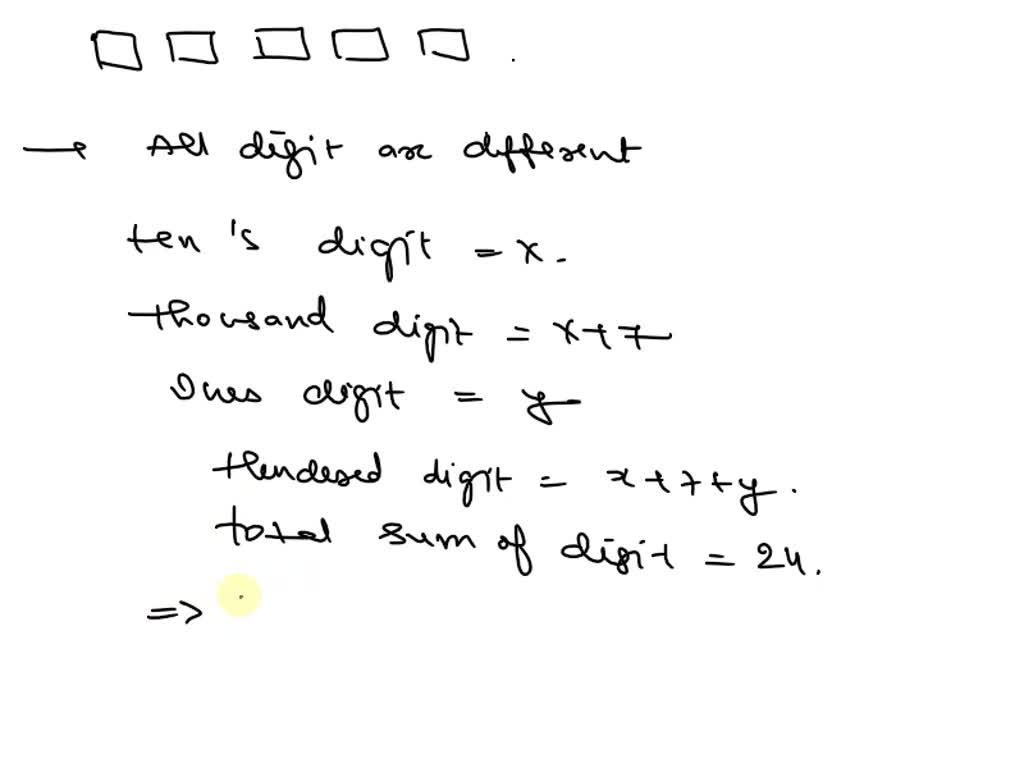 → All digit are different
ten's digit = x.
thousand digit = x+7
Ones digit = y
Hundered digit = x+7+y.
total sum of digit = 24.
=>